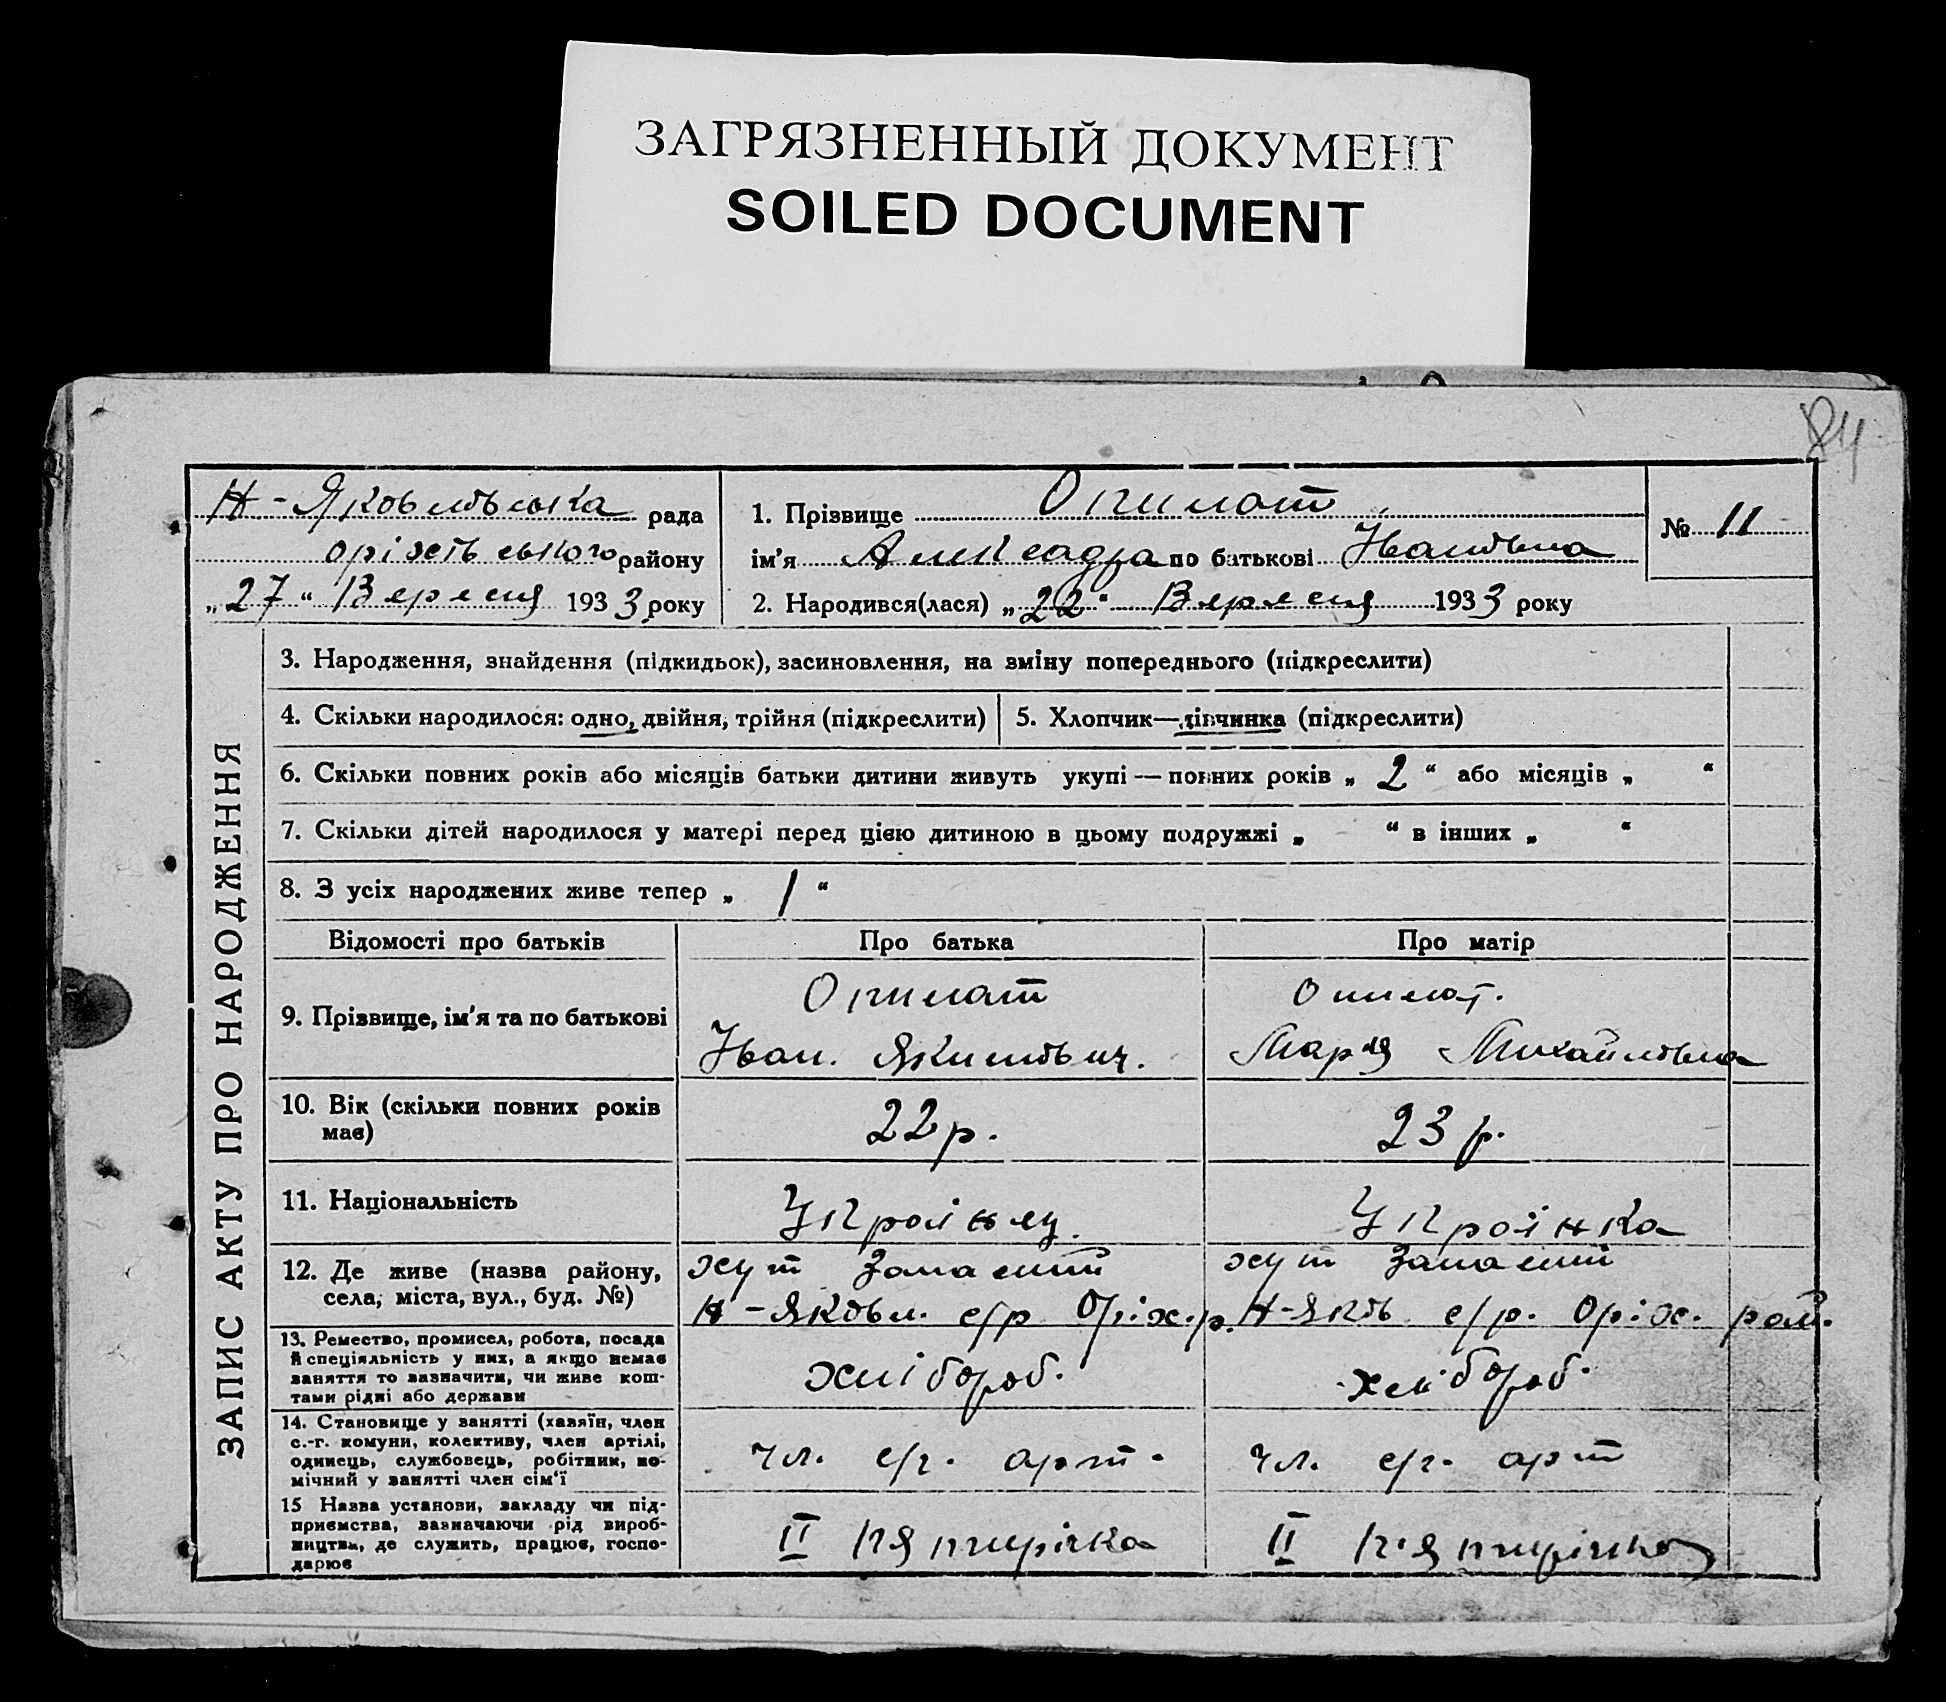 ЗАГРЯЗНЕННЫЙ ДОКУМЕНТ
SOILED DOCUMENT
84
Н-Яковлівська рада
оріхівського району
„27“ Вересня 1933 року
1. Прізвище Опимат
ім'я Александра по батькові Івановна
2. Народився(лася) „22“ Вересня 1933 року
№ 11
ЗАПИС АКТУ ПРО НАРОДЖЕННЯ
3. Народження, знайдення (підкидьок), засиновлення, на зміну попереднього (підкреслити)
4. Скільки народилося: одно, двійня, трійня (підкреслити)
5. Хлопчик—дівчинка (підкреслити)
6. Скільки повних років або місяців батьки дитини живуть укупі — повних років „ 2 “ або місяців „ “
7. Скільки дітей народилося у матері перед цією дитиною в цьому подружжі „ “ в інших „ “
8. З усіх народжених живе тепер „ 1 “
Відомості про батьків Про батька Про матір
9. Прізвище, ім'я та по батькові
Опимат
Іван. Якимович.
Опимат.
Марія Михайловна
10. Вік (скільки повних років
має)
22 р.
23 р.
11. Національність
Українец.
Українка
12. Де живе (назва району,
села, міста, вул., буд. №)
хут
Н-Яковл. с/р Оріх.р.
хут
Н-Яков с/р. Оріх. рай.
13. Ремество, промисел, робота, посада
й спеціяльність у них, а якщо немає
заняття то зазначити, чи живе кош-
тами рідні або держави
хлібороб.
хлібороб.
14. Становище у занятті (хазяїн, член
с.-г. комуни, колективу, член артілі,
одинець, службовець, робітник, по-
мічний у занятті член сім'ї
чл. с/г. арт.
чл. с/г. арт
15 Назва установи, закладу чи під-
приємства, зазначаючи рід вироб-
ництва, де служить, працює, госпо-
дарює
II пятирічка
II п'ятирічка